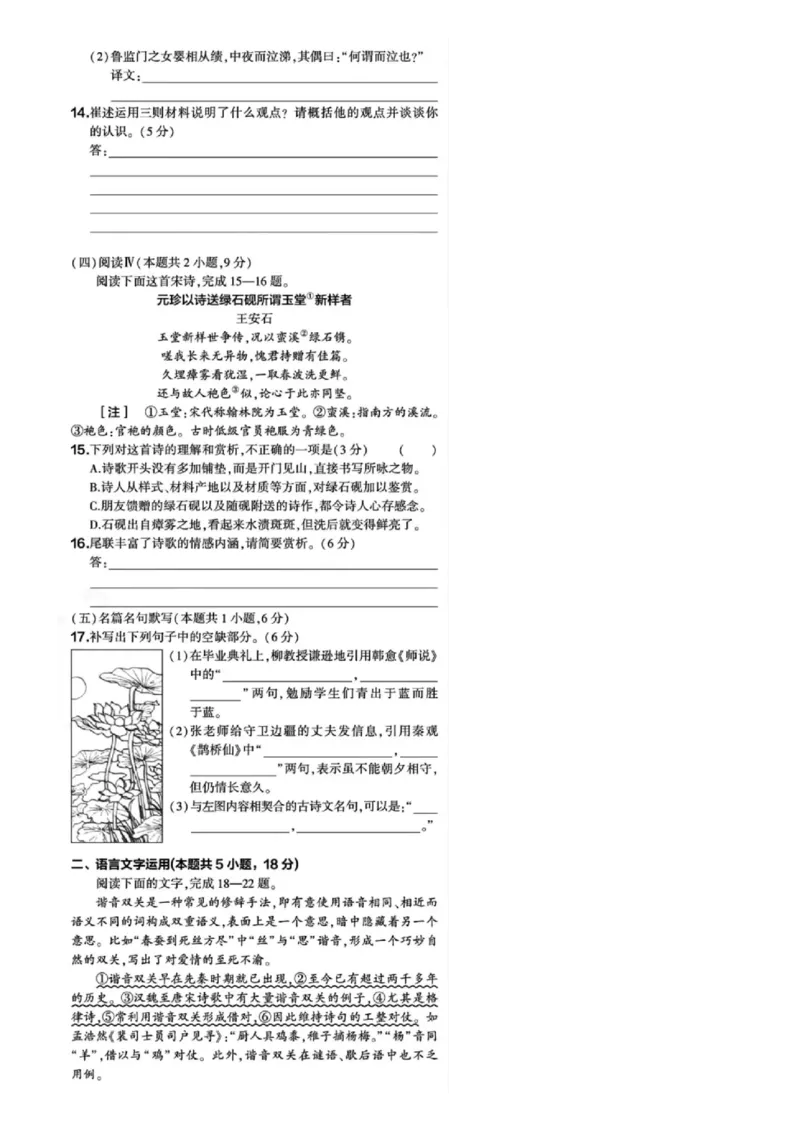 (2)鲁监门之女婴相从绩,中夜而泣涕,其偶曰:“何谓而泣也?”
译文:
14.崔述运用三则材料说明了什么观点? 请概括他的观点并谈谈你
的认识。(5分)
答:
(四)阅读Ⅳ(本题共2小题,9分)
阅读下面这首宋诗,完成15—16题。
元珍以诗送绿石砚所谓玉堂①新样者
王安石
玉堂新样世争传,况以蛮溪②绿石镌。
嗟我长来无异物,愧君持赠有佳篇。
久埋瘴雾看犹湿,一取春波洗更鲜。
还与故人袍色③似,论心于此亦同坚。
[注] ①玉堂:宋代称翰林院为玉堂。②蛮溪:指南方的溪流。
③袍色:官袍的颜色。古时低级官员袍服为青绿色。
15.下列对这首诗的理解和赏析,不正确的一项是(3分) ( )
A.诗歌开头没有多加铺垫,而是开门见山,直接书写所咏之物。
B.诗人从样式、材料产地以及材质等方面,对绿石砚加以鉴赏。
C.朋友馈赠的绿石砚以及随砚附送的诗作,都令诗人心存感念。
D.石砚出自瘴雾之地,看起来水渍斑斑,但洗后就变得鲜亮了。
16.尾联丰富了诗歌的情感内涵,请简要赏析。(6分)
答:
(五)名篇名句默写(本题共1小题,6分)
17.补写出下列句子中的空缺部分。(6分)
(1)在毕业典礼上,柳教授谦逊地引用韩愈《师说》
中的“ ,
”两句,勉励学生们青出于蓝而胜
于蓝。
(2)张老师给守卫边疆的丈夫发信息,引用秦观
《鹊桥仙》中“ ,
”两句,表示虽不能朝夕相守,
但仍情长意久。
(3)与左图内容相契合的古诗文名句,可以是:“
, 。”
二、语言文字运用(本题共5小题,18分)
阅读下面的文字,完成18—22题。
谐音双关是一种常见的修辞手法,即有意使用语音相同、相近而
语义不同的词构成双重语义,表面上是一个意思,暗中隐藏着另一个
意思。比如“春蚕到死丝方尽”中“丝”与“思”谐音,形成一个巧妙自
然的双关,写出了对爱情的至死不渝。
①谐音双关早在先秦时期就已出现,②至今已有超过两千多年
的历史。③汉魏至唐宋诗歌中有大量谐音双关的例子,④尤其是格
律诗,⑤常利用谐音双关形成借对,⑥因此维持诗句的工整对仗。如
孟浩然《裴司士员司户见寻》:“厨人具鸡黍,稚子摘杨梅。”“杨”音同
“羊”,借以与“鸡”对仗。此外,谐音双关在谜语、歇后语中也不乏
用例。